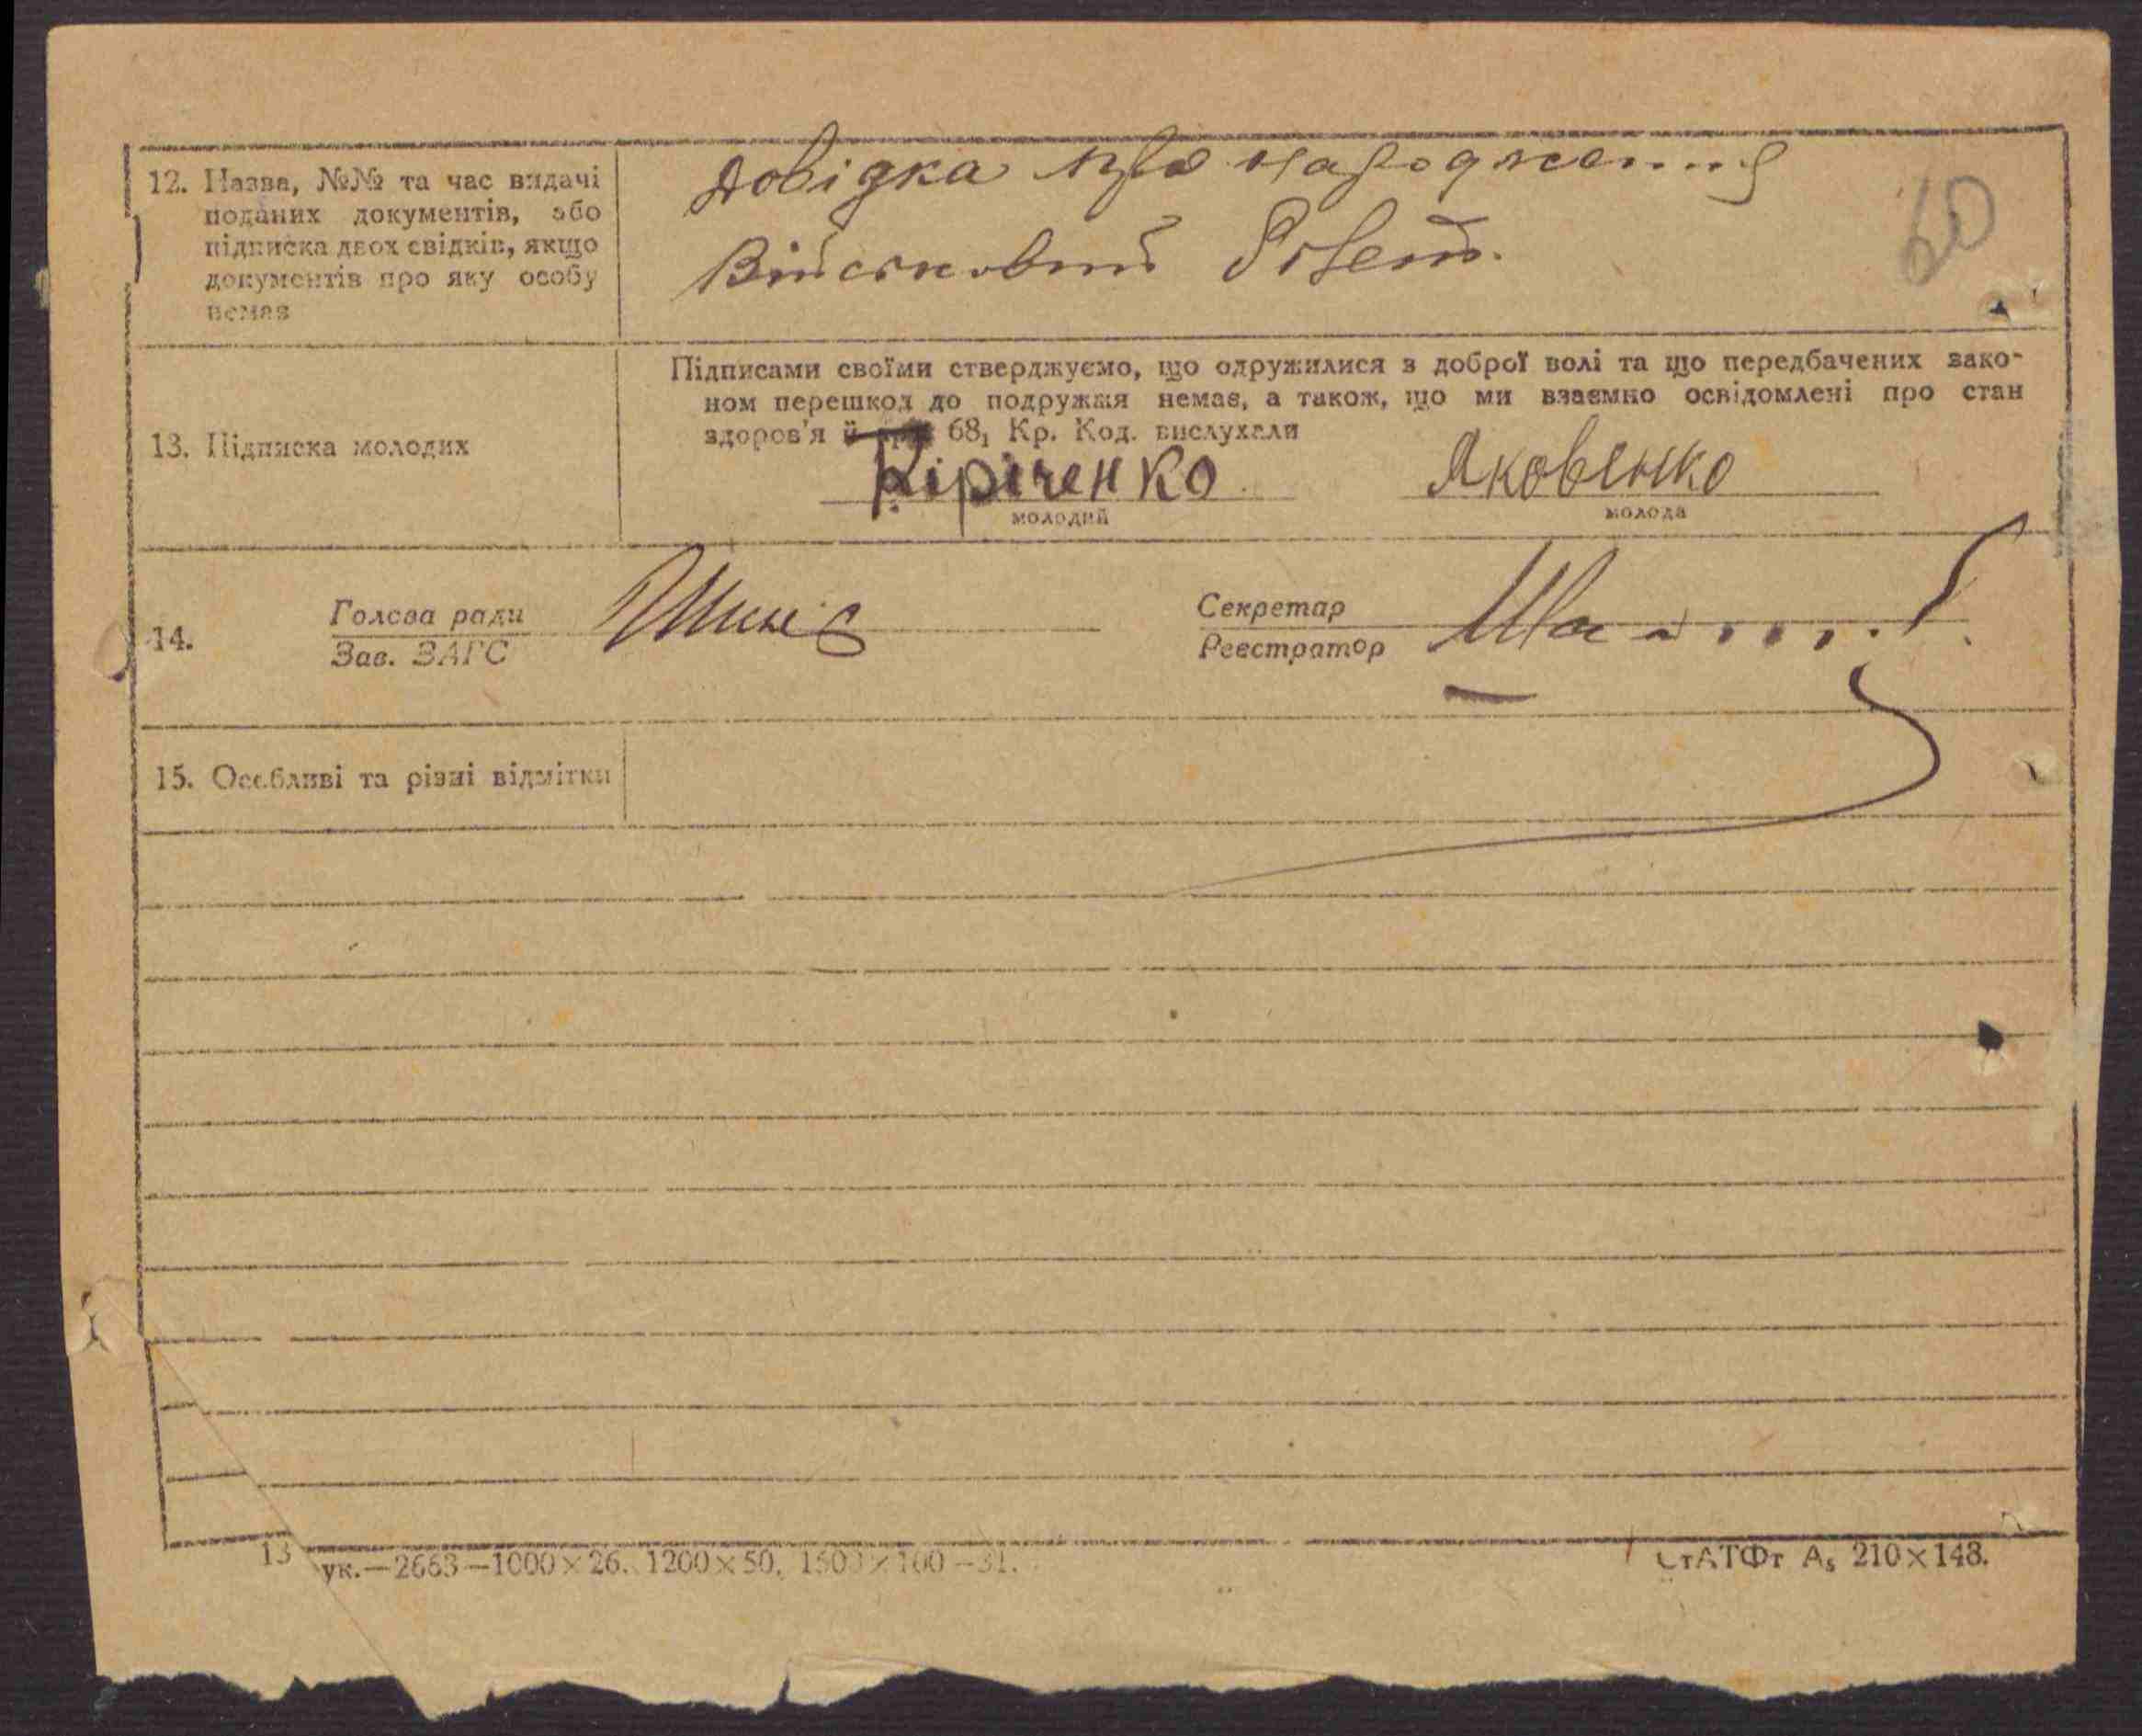 12. Назва, №№ та час видачі
поданих документів, або
підписка двох свідків, якщо
документів про яку особу
немає
Довідка про народження
Військовий
60
13. Підписка молодих
Підписами своїми стверджуємо, що одружилися з доброї волі та що передбачених зако-
ном перешкод до подружжя немає, а також, що ми взаємно освідомлені про стан
здоров'я й 68₁ Кр. Код. вислухали
Кіріченко
молодий
Яковенко
молода
14.
Голова ради
Зав. ЗАГС
Секретар
Реєстратор
15. Особливі та різні відмітки
13
ук.—2663—1000×26. 1200×50, 1500×100—31.
СтАТФт А₅ 210×148.